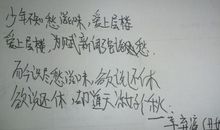 少年不知愁滋味，爱上层楼
爱上层楼，为赋新词强说愁
而今识尽愁滋味，欲说还休
欲说还休，却道天凉好个秋
——辛弃疾